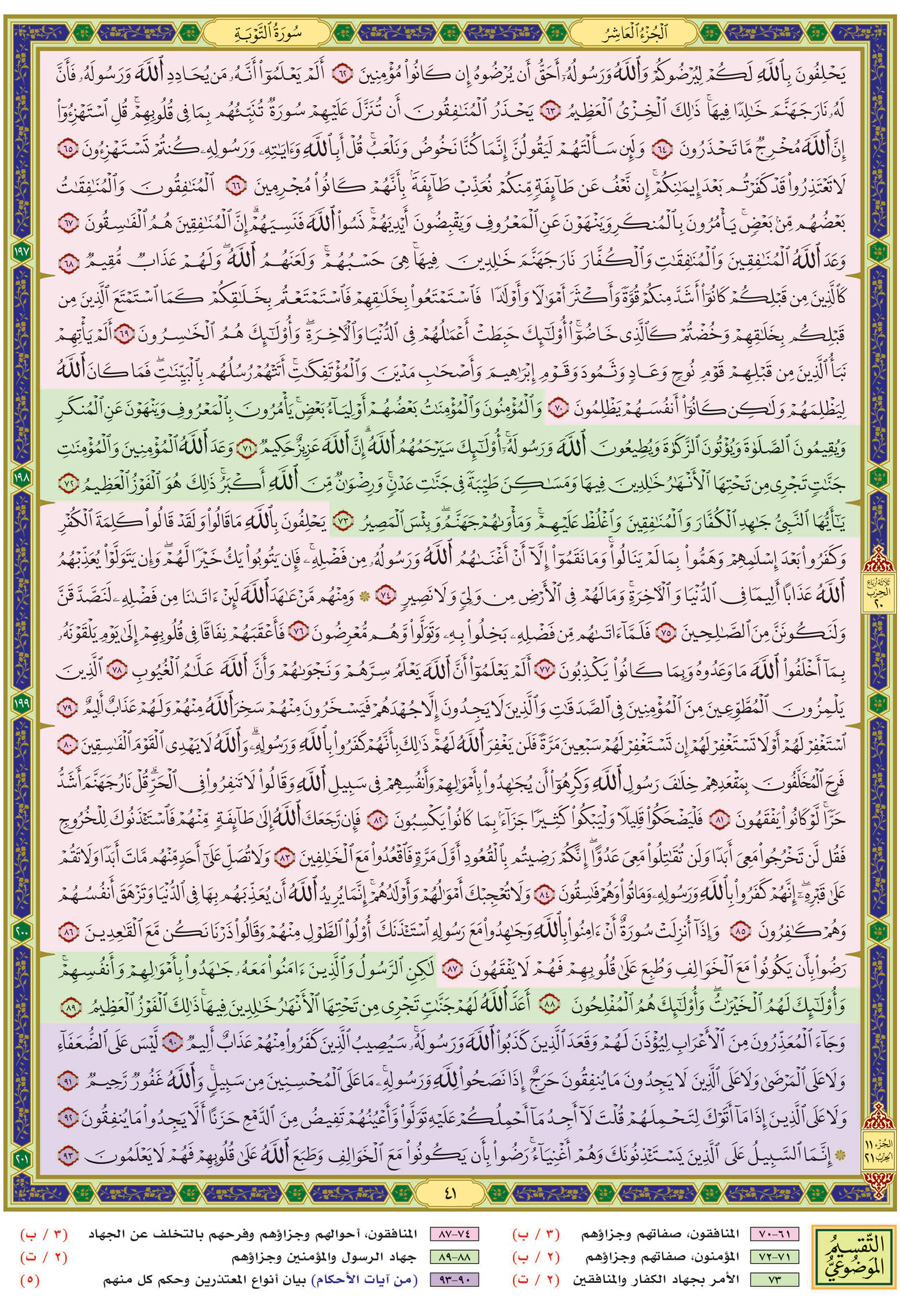 الجُزْءُ العَاشِرُ
سُورَةُ التَّوْبَةِ
يَحْلِفُونَ بِٱللَّهِ لَكُمْ لِيُرْضُوكُمْ وَٱللَّهُ وَرَسُولُهُۥٓ أَحَقُّ أَن يُرْضُوهُ إِن كَانُوا۟ مُؤْمِنِينَ ٦٢ أَلَمْ يَعْلَمُوٓا۟ أَنَّهُۥ مَن يُحَادِدِ ٱللَّهَ وَرَسُولَهُۥ فَأَنَّ
لَهُۥ نَارَ جَهَنَّمَ خَٰلِدًا فِيهَا ۚ ذَٰلِكَ ٱلْخِزْىُ ٱلْعَظِيمُ ٦٣ يَحْذَرُ ٱلْمُنَٰفِقُونَ أَن تُنَزَّلَ عَلَيْهِمْ سُورَةٌ تُنَبِّئُهُم بِمَا فِى قُلُوبِهِمْ ۚ قُلِ ٱسْتَهْزِءُوٓا۟
إِنَّ ٱللَّهَ مُخْرِجٌ مَّا تَحْذَرُونَ ٦٤ وَلَئِن سَأَلْتَهُمْ لَيَقُولُنَّ إِنَّمَا كُنَّا نَخُوضُ وَنَلْعَبُ ۚ قُلْ أَبِٱللَّهِ وَءَايَٰتِهِۦ وَرَسُولِهِۦ كُنتُمْ تَسْتَهْزِءُونَ ٦٥
لَا تَعْتَذِرُوا۟ قَدْ كَفَرْتُم بَعْدَ إِيمَٰنِكُمْ ۚ إِن نَّعْفُ عَن طَآئِفَةٍ مِّنكُمْ نُعَذِّبْ طَآئِفَةًۢ بِأَنَّهُمْ كَانُوا۟ مُجْرِمِينَ ٦٦ ٱلْمُنَٰفِقُونَ وَٱلْمُنَٰفِقَٰتُ
بَعْضُهُم مِّنۢ بَعْضٍ ۚ يَأْمُرُونَ بِٱلْمُنكَرِ وَيَنْهَوْنَ عَنِ ٱلْمَعْرُوفِ وَيَقْبِضُونَ أَيْدِيَهُمْ ۚ نَسُوا۟ ٱللَّهَ فَنَسِيَهُمْ ۗ إِنَّ ٱلْمُنَٰفِقِينَ هُمُ ٱلْفَٰسِقُونَ ٦٧
وَعَدَ ٱللَّهُ ٱلْمُنَٰفِقِينَ وَٱلْمُنَٰفِقَٰتِ وَٱلْكُفَّارَ نَارَ جَهَنَّمَ خَٰلِدِينَ فِيهَا ۚ هِىَ حَسْبُهُمْ ۚ وَلَعَنَهُمُ ٱللَّهُ ۖ وَلَهُمْ عَذَابٌ مُّقِيمٌ ٦٨
١٩٧
كَٱلَّذِينَ مِن قَبْلِكُمْ كَانُوٓا۟ أَشَدَّ مِنكُمْ قُوَّةً وَأَكْثَرَ أَمْوَٰلًا وَأَوْلَٰدًا فَٱسْتَمْتَعُوا۟ بِخَلَٰقِهِمْ فَٱسْتَمْتَعْتُم بِخَلَٰقِكُمْ كَمَا ٱسْتَمْتَعَ ٱلَّذِينَ مِن
قَبْلِكُم بِخَلَٰقِهِمْ وَخُضْتُمْ كَٱلَّذِى خَاضُوٓا۟ ۚ أُو۟لَٰٓئِكَ حَبِطَتْ أَعْمَٰلُهُمْ فِى ٱلدُّنْيَا وَٱلْءَاخِرَةِ ۖ وَأُو۟لَٰٓئِكَ هُمُ ٱلْخَٰسِرُونَ ٦٩ أَلَمْ يَأْتِهِمْ
نَبَأُ ٱلَّذِينَ مِن قَبْلِهِمْ قَوْمِ نُوحٍ وَعَادٍ وَثَمُودَ وَقَوْمِ إِبْرَٰهِيمَ وَأَصْحَٰبِ مَدْيَنَ وَٱلْمُؤْتَفِكَٰتِ ۚ أَتَتْهُمْ رُسُلُهُم بِٱلْبَيِّنَٰتِ ۖ فَمَا كَانَ ٱللَّهُ
لِيَظْلِمَهُمْ وَلَٰكِن كَانُوٓا۟ أَنفُسَهُمْ يَظْلِمُونَ ٧٠ وَٱلْمُؤْمِنُونَ وَٱلْمُؤْمِنَٰتُ بَعْضُهُمْ أَوْلِيَآءُ بَعْضٍ ۚ يَأْمُرُونَ بِٱلْمَعْرُوفِ وَيَنْهَوْنَ عَنِ ٱلْمُنكَرِ
وَيُقِيمُونَ ٱلصَّلَوٰةَ وَيُؤْتُونَ ٱلزَّكَوٰةَ وَيُطِيعُونَ ٱللَّهَ وَرَسُولَهُۥٓ ۚ أُو۟لَٰٓئِكَ سَيَرْحَمُهُمُ ٱللَّهُ ۗ إِنَّ ٱللَّهَ عَزِيزٌ حَكِيمٌ ٧١ وَعَدَ ٱللَّهُ ٱلْمُؤْمِنِينَ وَٱلْمُؤْمِنَٰتِ
١٩٨
جَنَّٰتٍ تَجْرِى مِن تَحْتِهَا ٱلْأَنْهَٰرُ خَٰلِدِينَ فِيهَا وَمَسَٰكِنَ طَيِّبَةً فِى جَنَّٰتِ عَدْنٍ ۚ وَرِضْوَٰنٌ مِّنَ ٱللَّهِ أَكْبَرُ ۚ ذَٰلِكَ هُوَ ٱلْفَوْزُ ٱلْعَظِيمُ ٧٢
يَٰٓأَيُّهَا ٱلنَّبِىُّ جَٰهِدِ ٱلْكُفَّارَ وَٱلْمُنَٰفِقِينَ وَٱغْلُظْ عَلَيْهِمْ ۚ وَمَأْوَىٰهُمْ جَهَنَّمُ ۖ وَبِئْسَ ٱلْمَصِيرُ ٧٣ يَحْلِفُونَ بِٱللَّهِ مَا قَالُوا۟ وَلَقَدْ قَالُوا۟ كَلِمَةَ ٱلْكُفْرِ
وَكَفَرُوا۟ بَعْدَ إِسْلَٰمِهِمْ وَهَمُّوا۟ بِمَا لَمْ يَنَالُوا۟ ۚ وَمَا نَقَمُوٓا۟ إِلَّآ أَنْ أَغْنَىٰهُمُ ٱللَّهُ وَرَسُولُهُۥ مِن فَضْلِهِۦ ۚ فَإِن يَتُوبُوا۟ يَكُ خَيْرًا لَّهُمْ ۖ وَإِن يَتَوَلَّوْا۟ يُعَذِّبْهُمُ
ٱللَّهُ عَذَابًا أَلِيمًا فِى ٱلدُّنْيَا وَٱلْءَاخِرَةِ ۚ وَمَا لَهُمْ فِى ٱلْأَرْضِ مِن وَلِىٍّ وَلَا نَصِيرٍ ٧٤ ۞ وَمِنْهُم مَّنْ عَٰهَدَ ٱللَّهَ لَئِنْ ءَاتَىٰنَا مِن فَضْلِهِۦ لَنَصَّدَّقَنَّ
ثلاثة أرباع
الحزب
٢٠
وَلَنَكُونَنَّ مِنَ ٱلصَّٰلِحِينَ ٧٥ فَلَمَّآ ءَاتَىٰهُم مِّن فَضْلِهِۦ بَخِلُوا۟ بِهِۦ وَتَوَلَّوا۟ وَّهُم مُّعْرِضُونَ ٧٦ فَأَعْقَبَهُمْ نِفَاقًا فِى قُلُوبِهِمْ إِلَىٰ يَوْمِ يَلْقَوْنَهُۥ
بِمَآ أَخْلَفُوا۟ ٱللَّهَ مَا وَعَدُوهُ وَبِمَا كَانُوا۟ يَكْذِبُونَ ٧٧ أَلَمْ يَعْلَمُوٓا۟ أَنَّ ٱللَّهَ يَعْلَمُ سِرَّهُمْ وَنَجْوَىٰهُمْ وَأَنَّ ٱللَّهَ عَلَّٰمُ ٱلْغُيُوبِ ٧٨ ٱلَّذِينَ
يَلْمِزُونَ ٱلْمُطَّوِّعِينَ مِنَ ٱلْمُؤْمِنِينَ فِى ٱلصَّدَقَٰتِ وَٱلَّذِينَ لَا يَجِدُونَ إِلَّا جُهْدَهُمْ فَيَسْخَرُونَ مِنْهُمْ ۙ سَخِرَ ٱللَّهُ مِنْهُمْ وَلَهُمْ عَذَابٌ أَلِيمٌ ٧٩
١٩٩
ٱسْتَغْفِرْ لَهُمْ أَوْ لَا تَسْتَغْفِرْ لَهُمْ إِن تَسْتَغْفِرْ لَهُمْ سَبْعِينَ مَرَّةً فَلَن يَغْفِرَ ٱللَّهُ لَهُمْ ۚ ذَٰلِكَ بِأَنَّهُمْ كَفَرُوا۟ بِٱللَّهِ وَرَسُولِهِۦ ۗ وَٱللَّهُ لَا يَهْدِى ٱلْقَوْمَ ٱلْفَٰسِقِينَ ٨٠
فَرِحَ ٱلْمُخَلَّفُونَ بِمَقْعَدِهِمْ خِلَٰفَ رَسُولِ ٱللَّهِ وَكَرِهُوٓا۟ أَن يُجَٰهِدُوا۟ بِأَمْوَٰلِهِمْ وَأَنفُسِهِمْ فِى سَبِيلِ ٱللَّهِ وَقَالُوا۟ لَا تَنفِرُوا۟ فِى ٱلْحَرِّ ۗ قُلْ نَارُ جَهَنَّمَ أَشَدُّ
حَرًّا ۚ لَّوْ كَانُوا۟ يَفْقَهُونَ ٨١ فَلْيَضْحَكُوا۟ قَلِيلًا وَلْيَبْكُوا۟ كَثِيرًا جَزَآءًۢ بِمَا كَانُوا۟ يَكْسِبُونَ ٨٢ فَإِن رَّجَعَكَ ٱللَّهُ إِلَىٰ طَآئِفَةٍ مِّنْهُمْ فَٱسْتَـْٔذَنُوكَ لِلْخُرُوجِ
فَقُل لَّن تَخْرُجُوا۟ مَعِىَ أَبَدًا وَلَن تُقَٰتِلُوا۟ مَعِىَ عَدُوًّا ۖ إِنَّكُمْ رَضِيتُم بِٱلْقُعُودِ أَوَّلَ مَرَّةٍ فَٱقْعُدُوا۟ مَعَ ٱلْخَٰلِفِينَ ٨٣ وَلَا تُصَلِّ عَلَىٰٓ أَحَدٍ مِّنْهُم مَّاتَ أَبَدًا وَلَا تَقُمْ
عَلَىٰ قَبْرِهِۦٓ ۖ إِنَّهُمْ كَفَرُوا۟ بِٱللَّهِ وَرَسُولِهِۦ وَمَاتُوا۟ وَهُمْ فَٰسِقُونَ ٨٤ وَلَا تُعْجِبْكَ أَمْوَٰلُهُمْ وَأَوْلَٰدُهُمْ ۚ إِنَّمَا يُرِيدُ ٱللَّهُ أَن يُعَذِّبَهُم بِهَا فِى ٱلدُّنْيَا وَتَزْهَقَ أَنفُسُهُمْ
وَهُمْ كَٰفِرُونَ ٨٥ وَإِذَآ أُنزِلَتْ سُورَةٌ أَنْ ءَامِنُوا۟ بِٱللَّهِ وَجَٰهِدُوا۟ مَعَ رَسُولِهِ ٱسْتَـْٔذَنَكَ أُو۟لُوا۟ ٱلطَّوْلِ مِنْهُمْ وَقَالُوا۟ ذَرْنَا نَكُن مَّعَ ٱلْقَٰعِدِينَ ٨٦
٢٠٠
رَضُوا۟ بِأَن يَكُونُوا۟ مَعَ ٱلْخَوَالِفِ وَطُبِعَ عَلَىٰ قُلُوبِهِمْ فَهُمْ لَا يَفْقَهُونَ ٨٧ لَٰكِنِ ٱلرَّسُولُ وَٱلَّذِينَ ءَامَنُوا۟ مَعَهُۥ جَٰهَدُوا۟ بِأَمْوَٰلِهِمْ وَأَنفُسِهِمْ ۚ
وَأُو۟لَٰٓئِكَ لَهُمُ ٱلْخَيْرَٰتُ ۖ وَأُو۟لَٰٓئِكَ هُمُ ٱلْمُفْلِحُونَ ٨٨ أَعَدَّ ٱللَّهُ لَهُمْ جَنَّٰتٍ تَجْرِى مِن تَحْتِهَا ٱلْأَنْهَٰرُ خَٰلِدِينَ فِيهَا ۚ ذَٰلِكَ ٱلْفَوْزُ ٱلْعَظِيمُ ٨٩
وَجَآءَ ٱلْمُعَذِّرُونَ مِنَ ٱلْأَعْرَابِ لِيُؤْذَنَ لَهُمْ وَقَعَدَ ٱلَّذِينَ كَذَبُوا۟ ٱللَّهَ وَرَسُولَهُۥ ۚ سَيُصِيبُ ٱلَّذِينَ كَفَرُوا۟ مِنْهُمْ عَذَابٌ أَلِيمٌ ٩٠ لَّيْسَ عَلَى ٱلضُّعَفَآءِ
وَلَا عَلَى ٱلْمَرْضَىٰ وَلَا عَلَى ٱلَّذِينَ لَا يَجِدُونَ مَا يُنفِقُونَ حَرَجٌ إِذَا نَصَحُوا۟ لِلَّهِ وَرَسُولِهِۦ ۚ مَا عَلَى ٱلْمُحْسِنِينَ مِن سَبِيلٍ ۚ وَٱللَّهُ غَفُورٌ رَّحِيمٌ ٩١
وَلَا عَلَى ٱلَّذِينَ إِذَا مَآ أَتَوْكَ لِتَحْمِلَهُمْ قُلْتَ لَآ أَجِدُ مَآ أَحْمِلُكُمْ عَلَيْهِ تَوَلَّوا۟ وَّأَعْيُنُهُمْ تَفِيضُ مِنَ ٱلدَّمْعِ حَزَنًا أَلَّا يَجِدُوا۟ مَا يُنفِقُونَ ٩٢
۞ إِنَّمَا ٱلسَّبِيلُ عَلَى ٱلَّذِينَ يَسْتَـْٔذِنُونَكَ وَهُمْ أَغْنِيَآءُ ۚ رَضُوا۟ بِأَن يَكُونُوا۟ مَعَ ٱلْخَوَالِفِ وَطَبَعَ ٱللَّهُ عَلَىٰ قُلُوبِهِمْ فَهُمْ لَا يَعْلَمُونَ ٩٣
الجزء ١١
الحزب ٢١
٢٠١
٤١
التَّقْسِيمُ
المَوْضُوعِيُّ
٦١-٧٠ المنافقون، صفاتهم وجزاؤهم (٣ / ب)
٧١-٧٢ المؤمنون، صفاتهم وجزاؤهم (٢ / ب)
٧٣ الأمر بجهاد الكفار والمنافقين (٢ / ت)
٧٤-٨٧ المنافقون، أحوالهم وجزاؤهم وفرحهم بالتخلف عن الجهاد (٣ / ب)
٨٨-٨٩ جهاد الرسول والمؤمنين وجزاؤهم (٢ / ت)
٩٠-٩٣ (من آيات الأحكام) بيان أنواع المعتذرين وحكم كل منهم (٥)